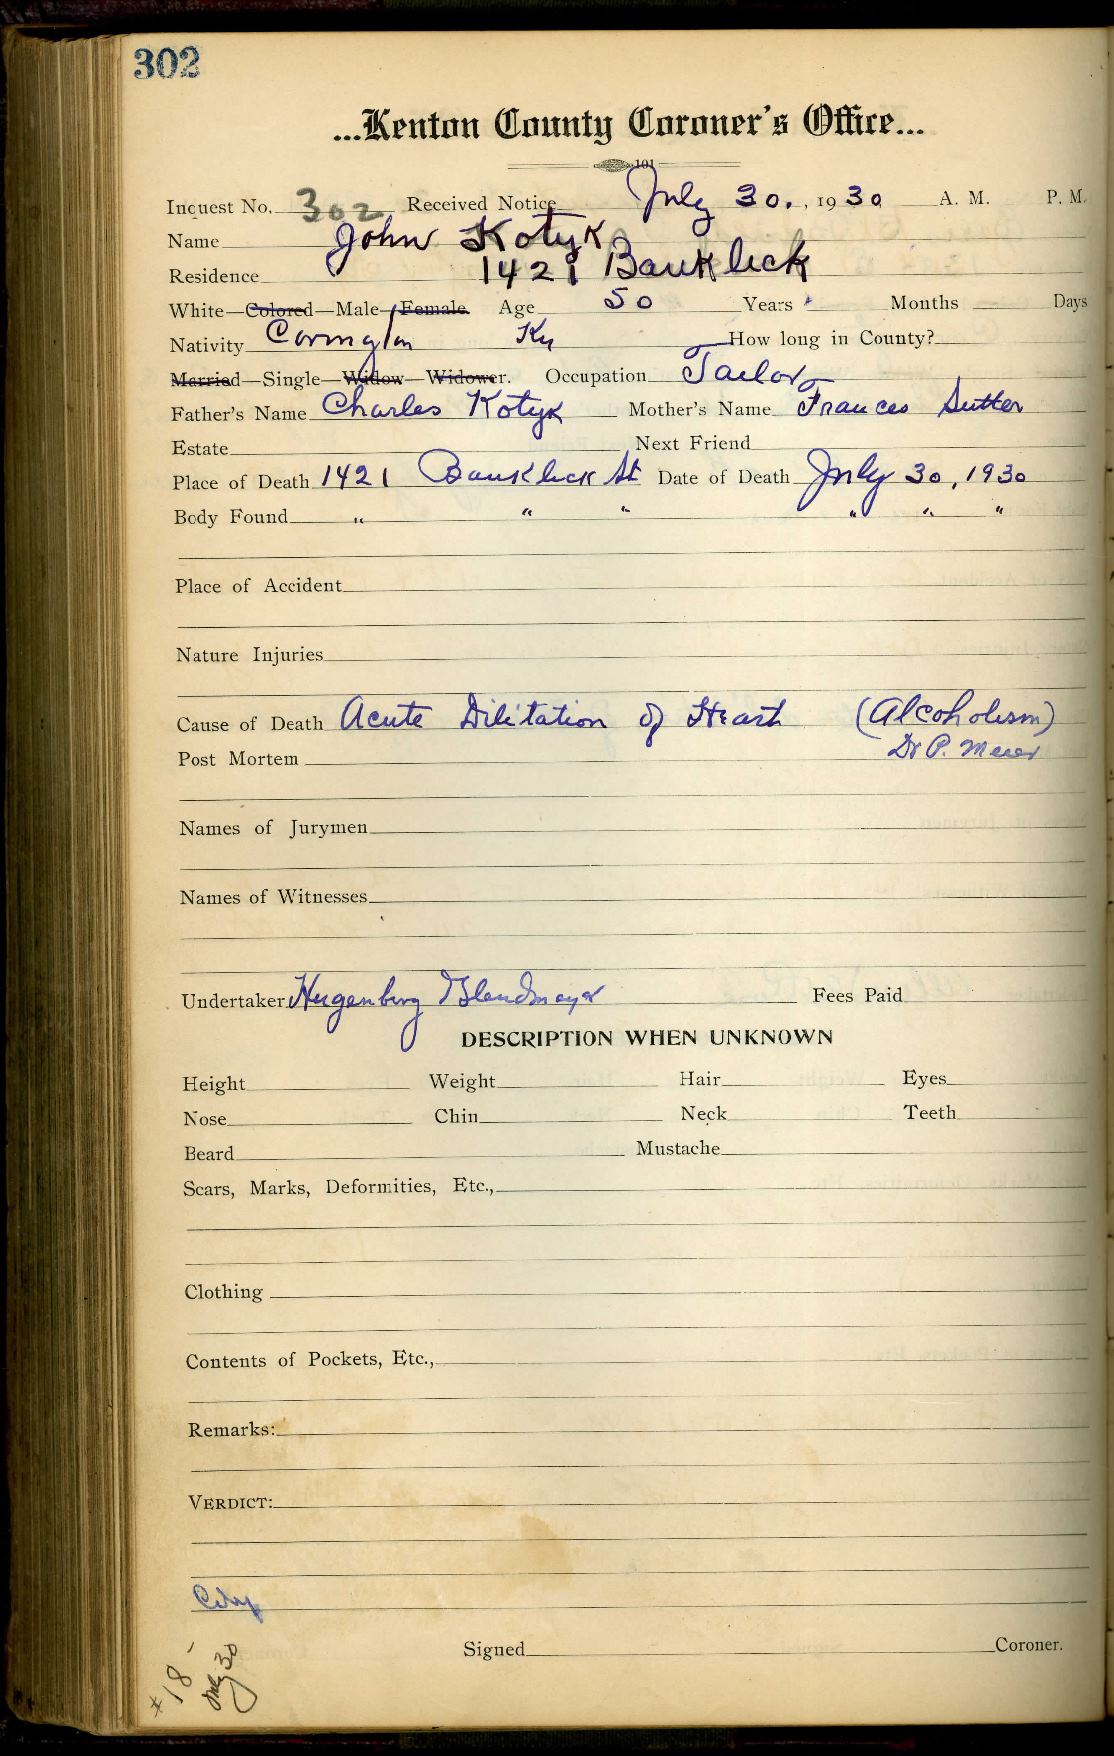 302
...Kenton County Coroner's Office...
101
Inquest No. 302 Received Notice July 30, 1930 A. M. P. M.
Name John Kotyk
Residence 1421 Banklick
White—Colored—Male—Female. Age 50 Years Months Days
Nativity Covington Ky How long in County?
Married—Single—Widow—Widower. Occupation Tailor
Father's Name Charles Kotyk Mother's Name Frances Sutter
Estate Next Friend
Place of Death 1421 Banklick St Date of Death July 30, 1930
Body Found " " " " " "
Place of Accident
Nature Injuries
Cause of Death Acute Dilitation of Heart (Alcoholism)
Dr P. Meier
Post Mortem
Names of Jurymen
Names of Witnesses
Undertaker Hugenberg Glandmeyer
Fees Paid
DESCRIPTION WHEN UNKNOWN
Height Weight Hair Eyes
Nose Chin Neck Teeth
Beard Mustache
Scars, Marks, Deformities, Etc.,
Clothing
Contents of Pockets, Etc.,
Remarks:
VERDICT:
Signed Coroner.
#18 - July 30